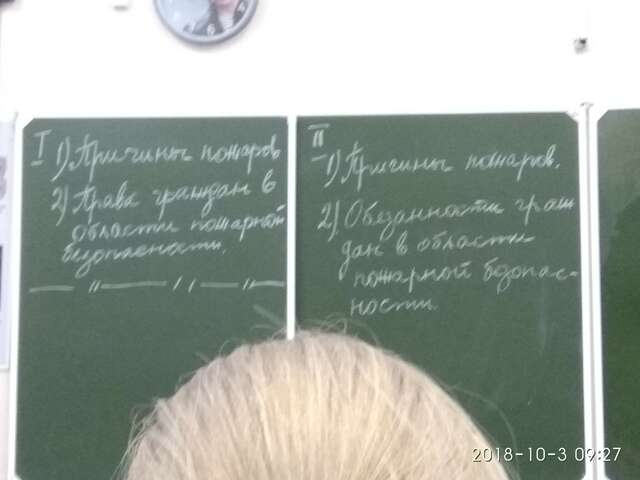 I
1) Причины пожаров
2) Права граждан в
области пожарной
безопасности.
— " — " — " —
II
1) Причины пожаров.
2) Обезанности граж
дан в области
пожарной бзопас-
ности
2018-10-3 09:27